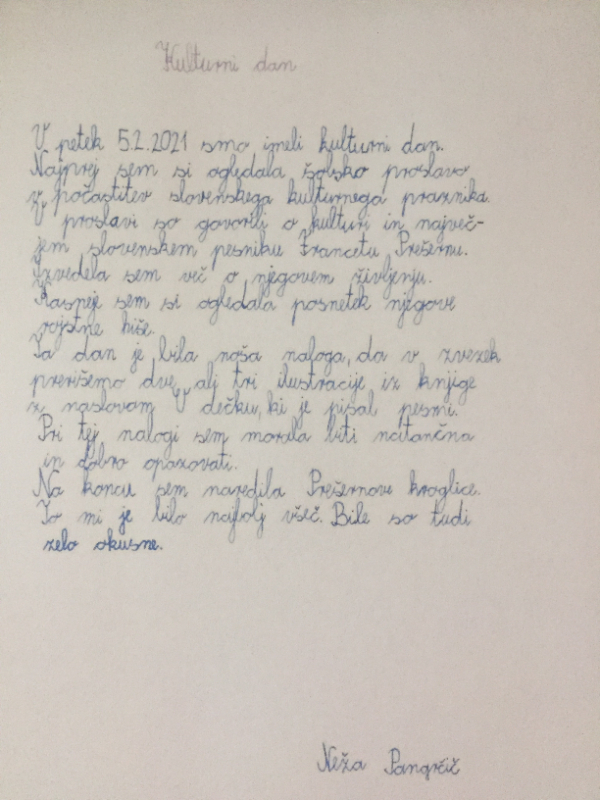 Kulturni dan
V petek 5.2.2021 smo imeli kulturni dan.
Najprej sem si ogledala šolsko proslavo
v počastitev slovenskega kulturnega praznika.
V proslavi so govorili o kulturi in največ-
jem slovenskem pesniku Francetu Prešernu.
Izvedela sem več o njegovem življenju.
Kasneje sem si ogledala posnetek njegove
rojstne hiše.
Ta dan je bila naša naloga, da v zvezek
prerišemo dve ali tri ilustracije iz knjige
z naslovom O dečku, ki je pisal pesmi.
Pri tej nalogi sem morala biti natančna
in dobro opazovati.
Na koncu sem naredila Prešernove kroglice.
To mi je bilo najbolj všeč. Bile so tudi
zelo okusne.
Neža Pangrčič